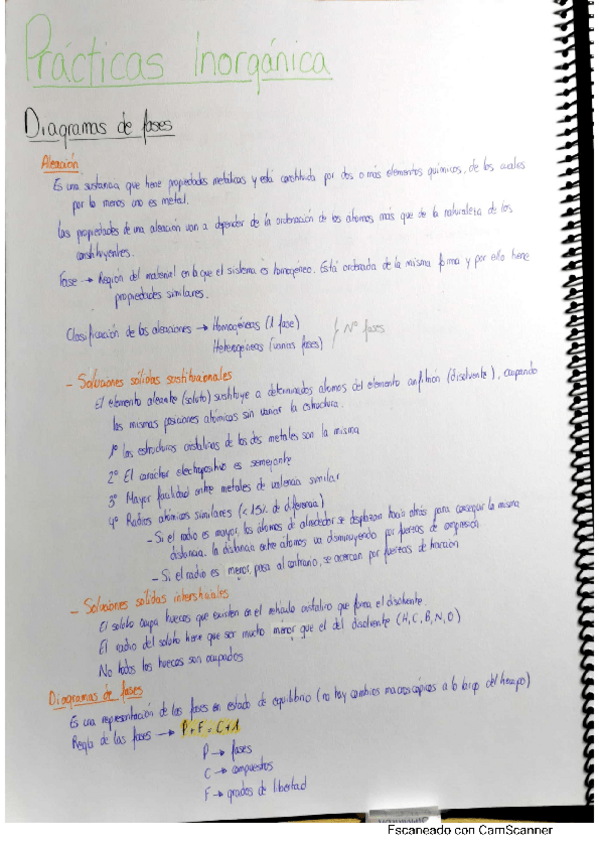 Prácticas inorgánica
Diagramas de fases
Aleación
Es una sustancia que tiene propiedades metálicas y está constituida por dos o más elementos químicos, de los cuales
por lo menos uno es metal.
Las propiedades de una aleación van a depender de la ordenación de los átomos más que de la naturaleza de los
constituyentes.
Fase → Región del material en la que el sistema es homogéneo. Está ordenada de la misma forma y por ello tiene
propiedades similares.
Clasificación de las aleaciones → Homogéneas (1 fase)
Heterogéneas (varias fases) } Nº fases
- Soluciones sólidas sustitucionales
El elemento aleante (soluto) sustituye a determinados átomos del elemento anfitrión (disolvente), ocupando
las mismas posiciones atómicas sin variar la estructura.
1º Las estructuras cristalinas de los dos metales son la misma
2º El carácter electropositivo es semejante
3º Mayor facilidad entre metales de valencia similar
4º Radios atómicos similares (<15% de diferencia)
- Si el radio es mayor, los átomos de alrededor se desplazan hacia atrás para conseguir la misma
distancia. La distancia entre átomos va disminuyendo por fuerzas de compresión
- Si el radio es menor, pasa al contrario, se acercan por fuerzas de tracción
- Soluciones sólidas intersticiales
El soluto ocupa huecos que existen en el retículo cristalino que forma el disolvente.
El radio del soluto tiene que ser mucho menor que el del disolvente (H, C, B, N, O)
No todos los huecos son ocupados
Diagramas de fases
Es una representación de las fases en estado de equilibrio (no hay cambios macroscópicos a lo largo del tiempo)
Regla de las fases → P + F = C + 1
P → fases
C → compuestos
F → grados de libertad
Escaneado con CamScanner